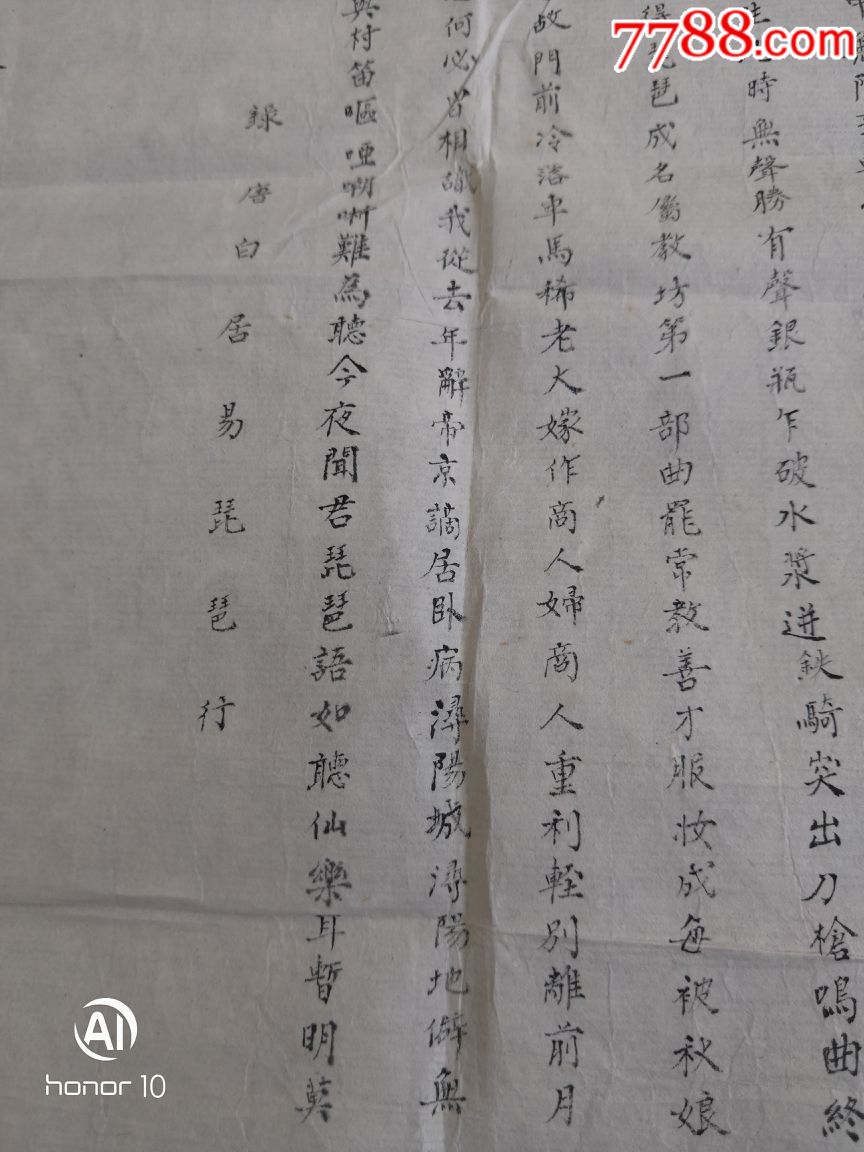 7788.com
時無聲勝有聲銀瓶乍破水漿迸鉄騎突出刀槍鳴曲終
琵琶成名屬教坊第一部曲罷常教善才服妝成每被秋娘
故門前冷落車馬稀老大嫁作商人婦商人重利輕別離前月
何必曾相識我從去年辭帝京謫居卧病潯陽城潯陽地僻無
與村笛嘔啞啁哳難為聽今夜聞君琵琶語如聽仙樂耳暫明莫
錄唐白居易琵琶行
AI
honor 10